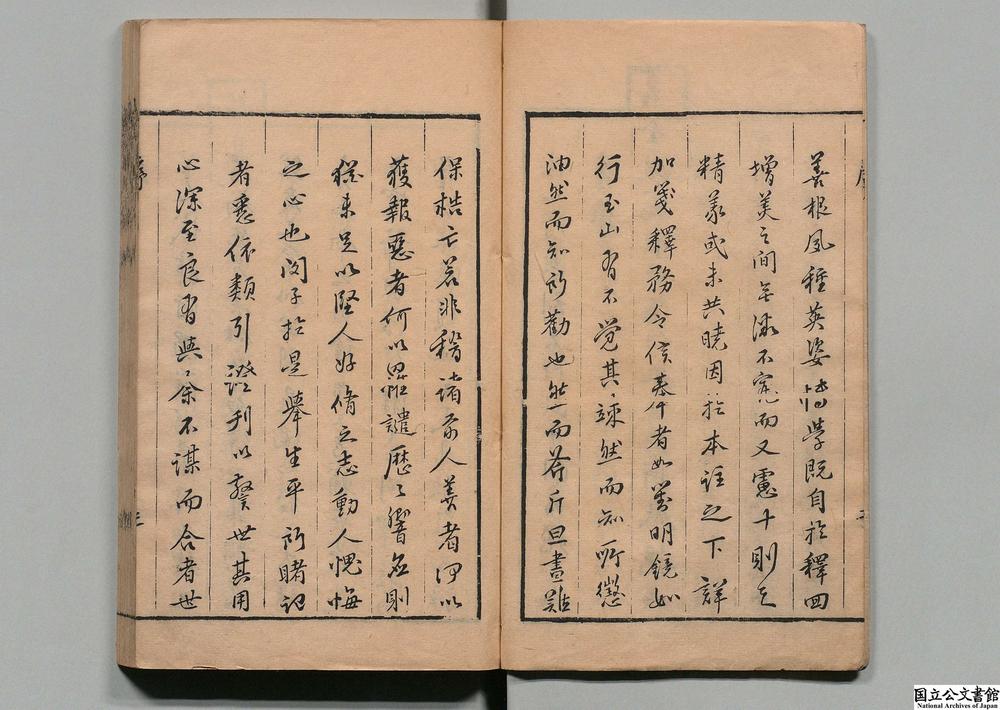 善根夙種英姿 學既自於釋回
增美之間無 不 而又慮十則之
精義或未共曉因於本註之下詳
加箋釋務令信奉者如對明鏡如
行玉山有不覺其竦然而知所懲
油然而知所勸也然而斧斤旦晝難
保梏亡若非稽諸前人善者何以
獲報惡者何以罹譴歷歷響應則
猶未足以堅人好脩之志動人愧悔
之心也閔子於是舉生平所睹記
者悉依類引證刊以警世其用
心深至良有與余不謀而合者世
序
三
国立公文書館
National Archives of Japan